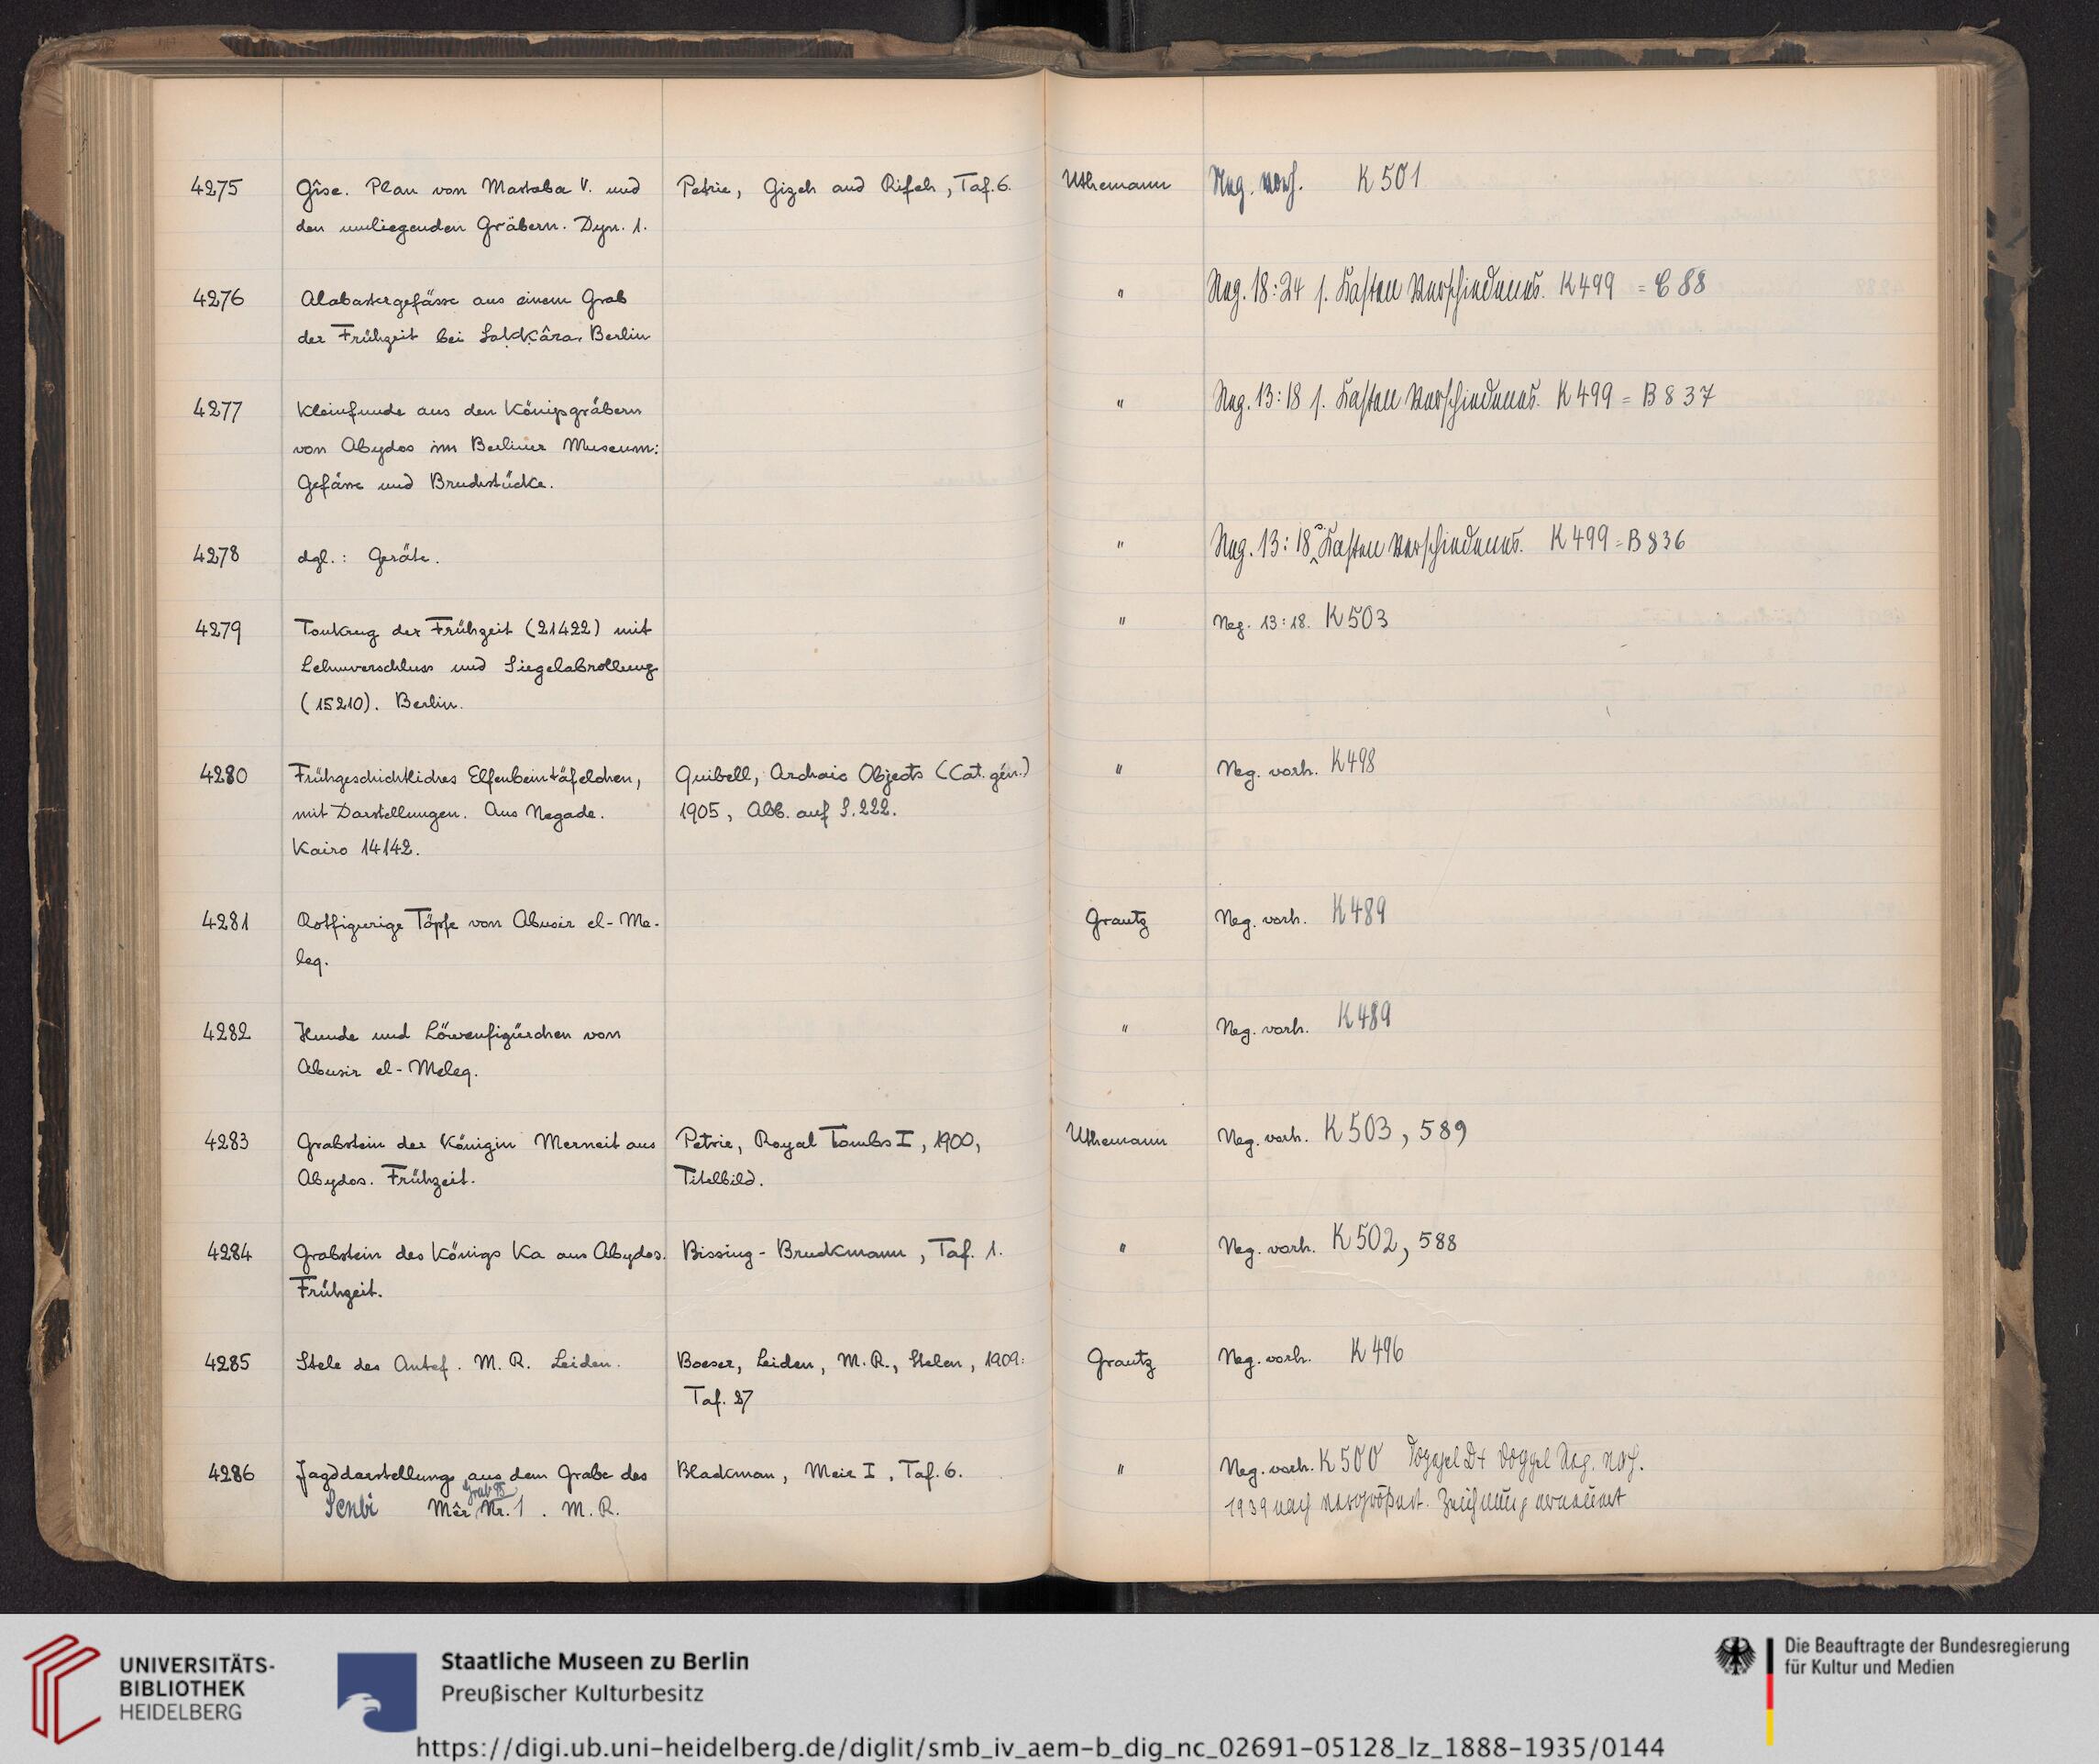 4275 Gîse. Plan von Mastaba V. und Petrie, Gizeh and Rifeh, Taf. 6. Uthemann Neg. vorh. K 501
den umliegenden Gräbern. Dyn. 1.
4276 Alabastergefässe aus einem Grab " Neg. 18:24 s. Kasten Verschiedenes. K 499 = C 88
der Frühzeit bei Berlin
4277 Kleinfunde aus den Königsgräbern " Neg. 13:18 s. Kasten Verschiedenes. K 499 = B 837
von Abydos im Berliner Museum:
Gefässe und Bruchstücke.
4278 dgl.: Geräte. " Neg. 13:18 s. Kasten Verschiedenes. K 499 = B 836
4279 Tonkrug der Frühzeit (21422) mit " Neg. 13:18. K 503
Lehmverschluss und Siegelabrollung
(15210). Berlin.
4280 Frühgeschichtliches Elfenbeintäfelchen, Quibell, Archaic Objects (Cat. gén.) " Neg. vorh. K 498
mit Darstellungen. Aus Negade. 1905, Abb. auf S. 222.
Kairo 14142.
4281 Rotfigurige Töpfe von Abusir el-Me- Grautz Neg. vorh. K 489
leq.
4282 Hunde und Löwenfigürchen von " Neg. vorh. K 489
Abusir el-Meleq.
4283 Grabstein der Königin Merneit aus Petrie, Royal Tombs I, 1900, Uthemann Neg. vorh. K 503, 589
Abydos. Frühzeit. Titelbild.
4284 Grabstein des Königs Ka aus Abydos. Bissing-Bruckmann, Taf. 1. " Neg. vorh. K 502, 588
Frühzeit.
4285 Stele des Antef. M. R. Leiden. Boeser, Leiden, M. R., Stelen, 1909: Grautz Neg. vorh. K 496
Taf. 27
4286 Jagddarstellung aus dem Grabe des Blackman, Meir I, Taf. 6. " Neg. vorh. K 500 Doppel D+ Doppel Neg. vorh.
Senbi Mêr Nr. 1. M. R. 1939 nach vergrößert. Zeichnung erneuert
UNIVERSITÄTS-
BIBLIOTHEK
HEIDELBERG
Staatliche Museen zu Berlin
Preußischer Kulturbesitz
Die Beauftragte der Bundesregierung
für Kultur und Medien
https://digi.ub.uni-heidelberg.de/diglit/smb_iv_aem-b_dig_nc_02691-05128_lz_1888-1935/0144